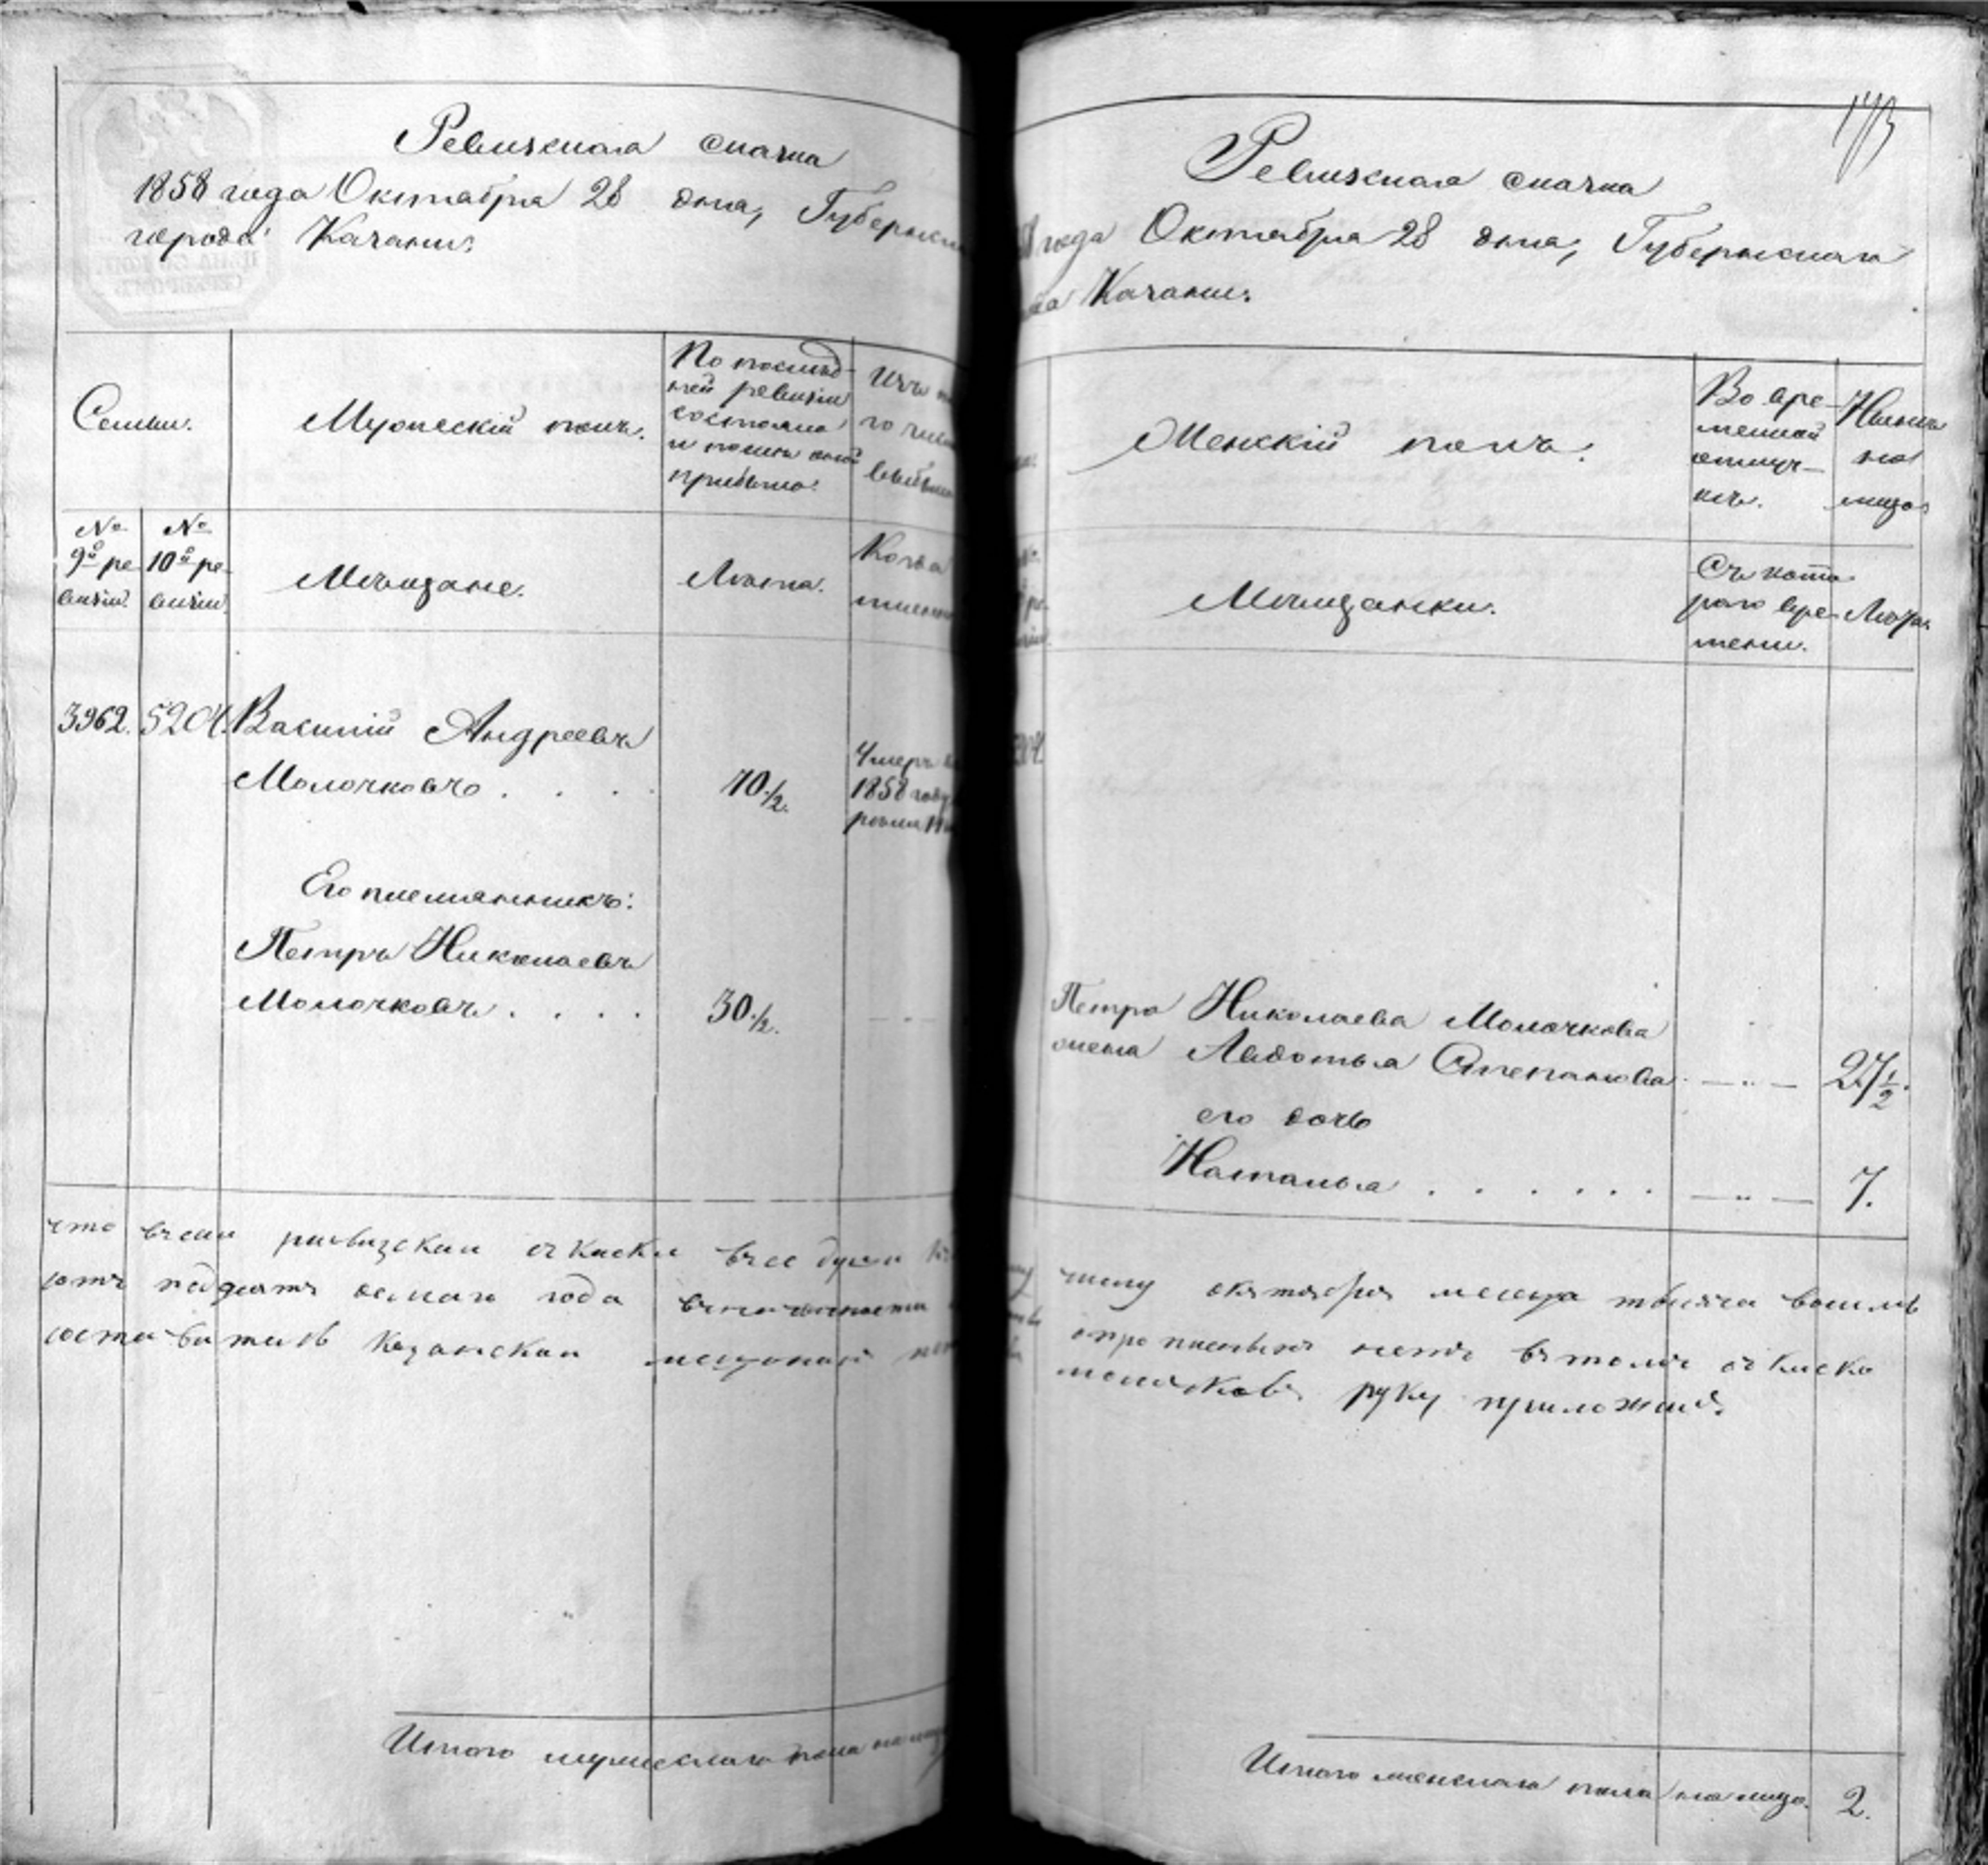 Ревизская сказка
1858 года Октября 28 дня, Губернска
города Казани.
Семьи.
Мужескій полъ.
По послѣд-
ней ревизіи
состояло
и послѣ оной
прибыло.
Изъ
го числа
выбыло
№
9й ре-
визіи.
№
10й ре-
визіи.
Мѣщане.
Лѣта.
Когда
именно
3962. 5204. Василій Андреевъ
Молочковъ . . . . 70½.
Умеръ въ
1858 году
Его племянникъ:
Петръ Николаевъ
Молочковъ . . . . 30½.
что всей ревизской сказки все души
пядесятъ осмаго года
составитель казанскай мещанинъ
Итого мужескаго пола на лицо
173
Ревизская сказка
года Октября 28 дня, Губернскаго
Казани.
Женскій полъ.
Во вре-
менной
отлуч-
кѣ.
Нынѣ
на
лицо
Мѣщанки.
Съ кото-
раго вре-
мени.
Лѣта.
Петра Николаева Молочкова
жена Авдотья Степанова — " — 27½.
его дочь
Наталья . . . . . . — " — 7.
числу октября месеца тысяча восимь
прописныхъ нетъ втомъ скаске
молочковъ руку приложилъ.
Итого женскаго пола на лицо. 2.